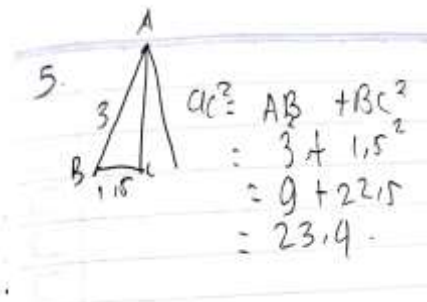 A
5.
3
B
C
1,5
ac² = AB² + BC²
= 3 + 1,5²
= 9 + 22,5
= 23,9.